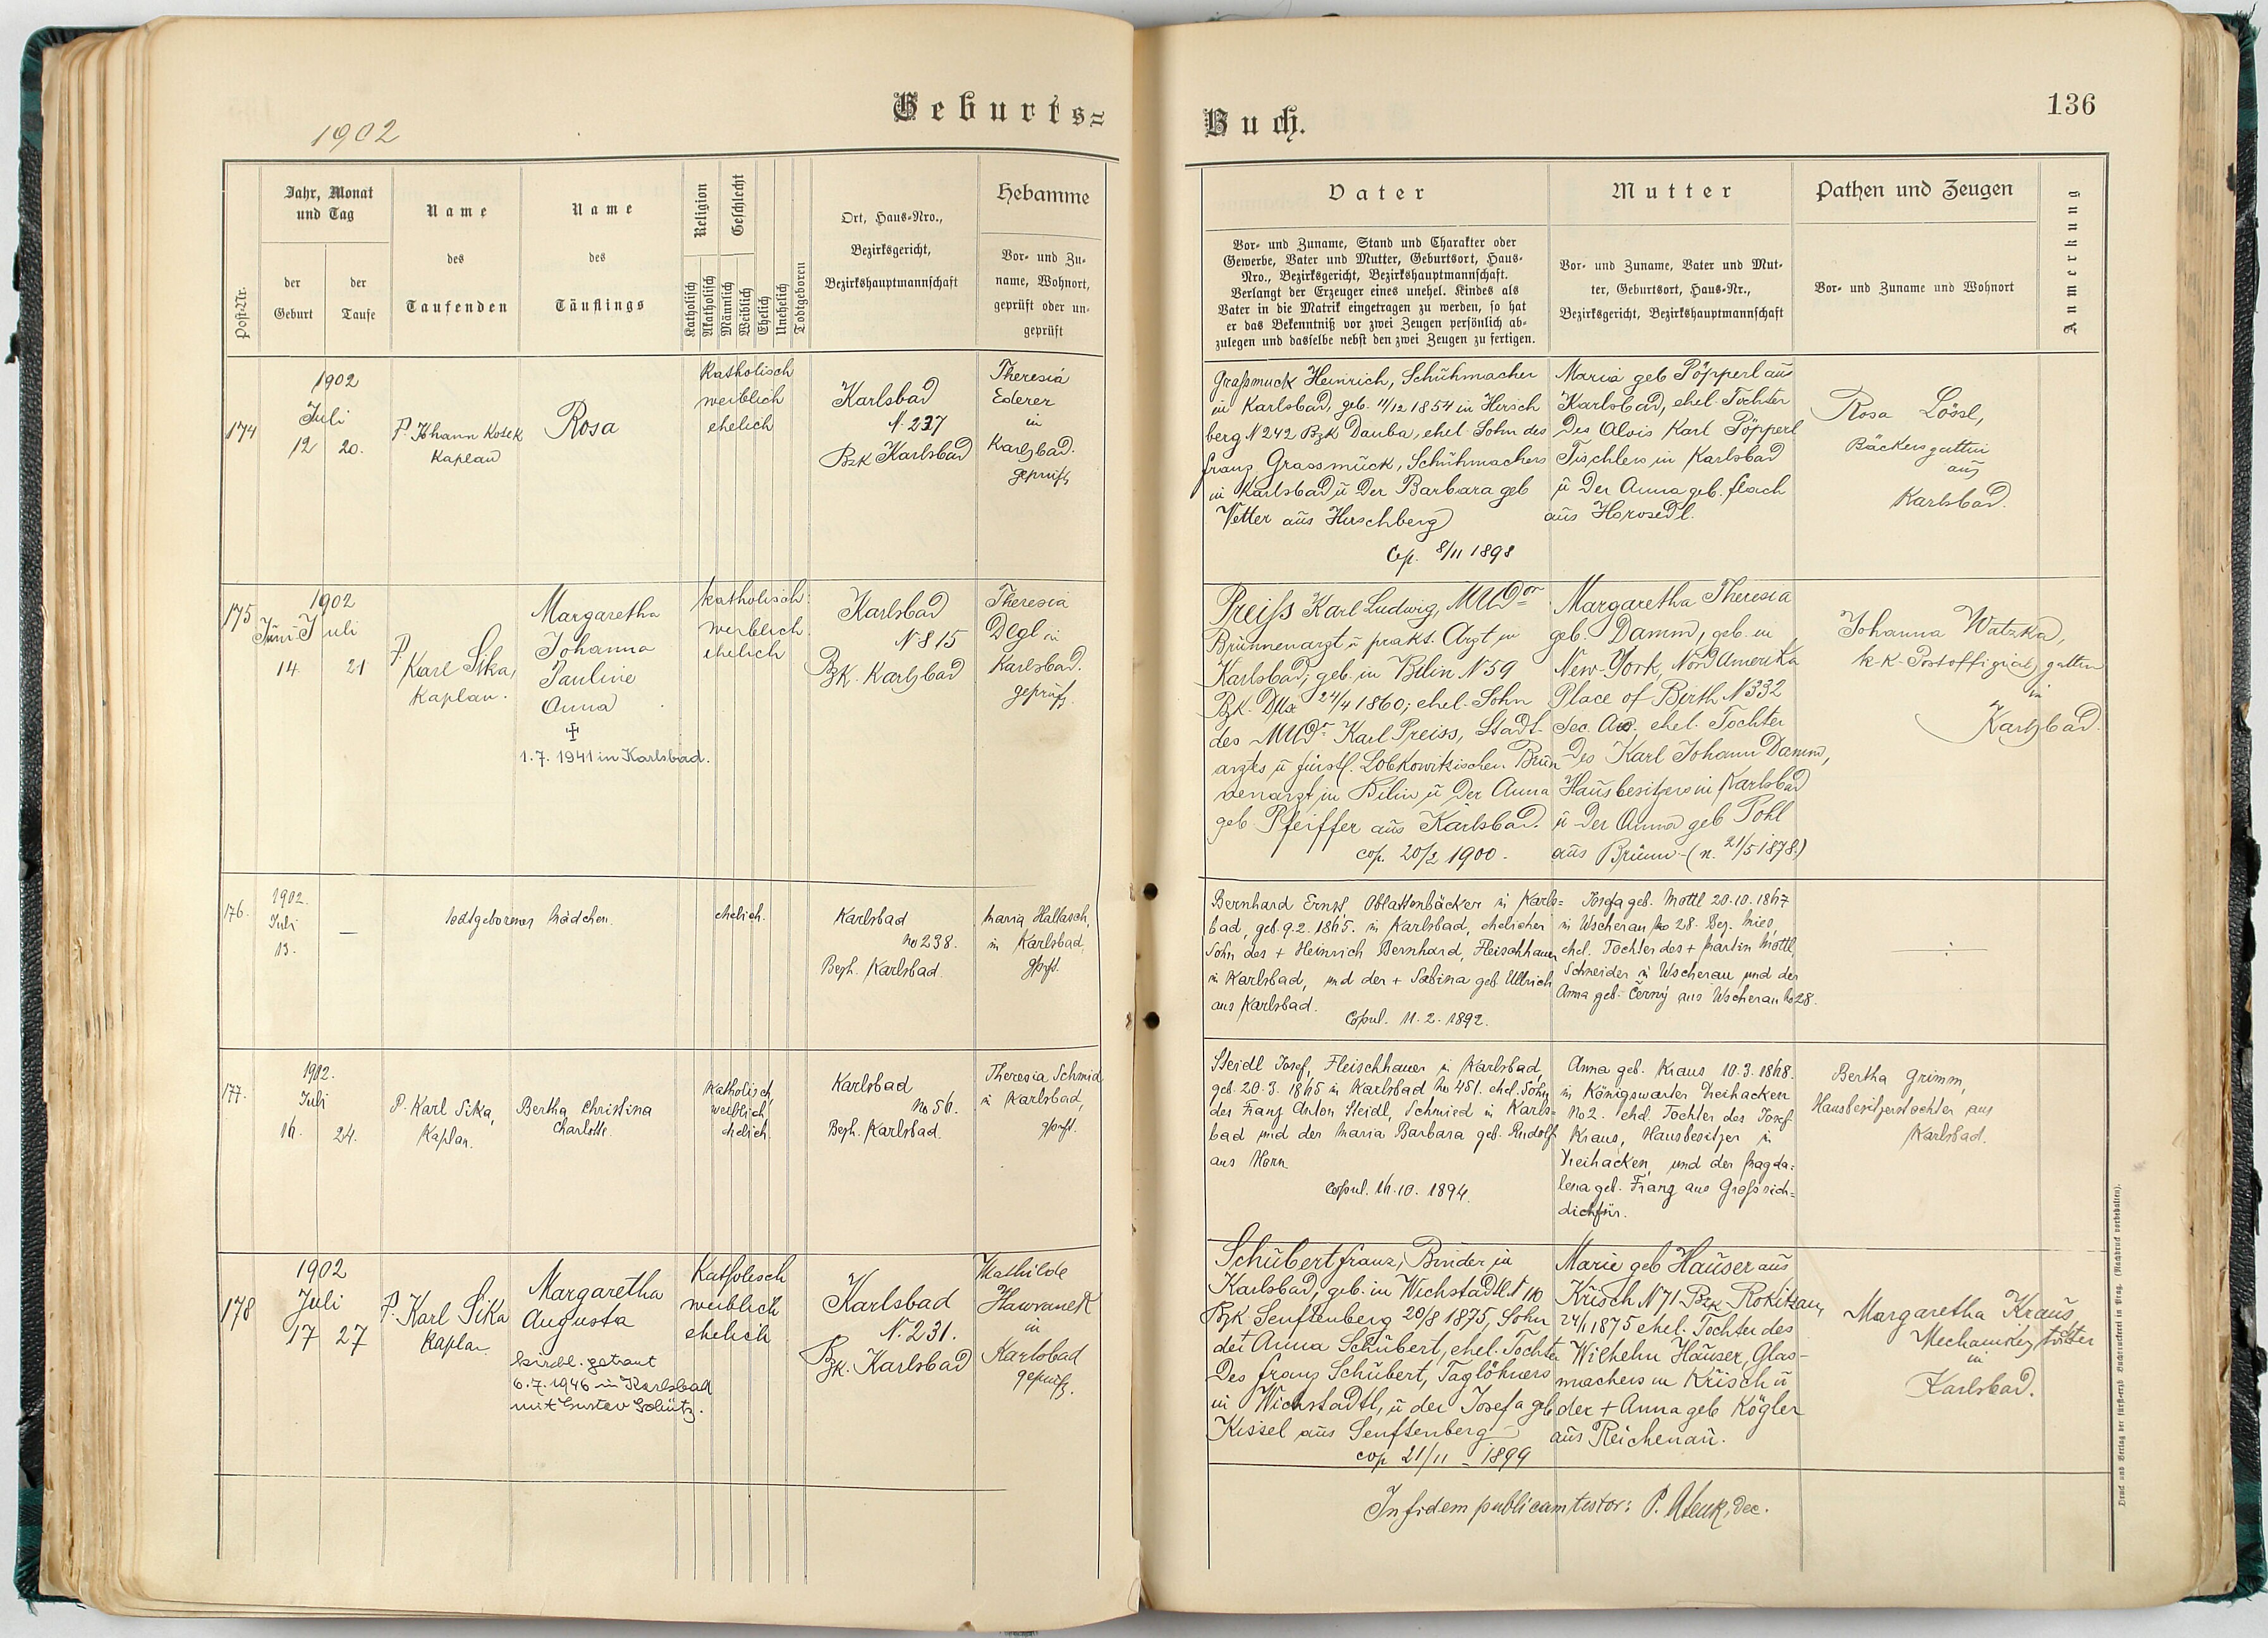 1902
Geburts=
Jahr, Monat
und Tag
Name
Name
Religion
Geschlecht
Ort, Haus-Nro.,
Hebamme
des
des
Bezirksgericht,
Vor- und Zu-
der
der
Bezirkshauptmannschaft
name, Wohnort,
Post-Nr.
Geburt
Taufe
Taufenden
Täuflings
Katholisch
Akatholisch
Männlich
Weiblich
Ehelich
Unehelich
Todtgeboren
geprüft oder un-
geprüft
174
1902
Juli
12 20.
P. Johann Kosek
Kaplan
Rosa
Katholisch
weiblich
ehelich
Karlsbad
N. 237
Bzk Karlsbad
Theresia
Ederer
in
Karlsbad.
geprüft
175
1902
Juni Juli
14. 21
P.
Karl Sika,
Kaplan.
Margaretha
Johanna
Pauline
Anna
✝
1.7. 1941 in Karlsbad.
katholisch
weiblich
ehelich
Karlsbad
N 815
Bzk. Karlsbad
Theresia
Degl in
Karlsbad.
geprüft
176.
1902.
Juli
13.
—
todtgeborenes Mädchen.
ehelich.
Karlsbad
No 238.
Bezh. Karlsbad.
Maria Hallasch,
in Karlsbad,
gprft.
177.
1902.
Juli
16. 24.
P. Karl Sika,
Kaplan.
Bertha Christina
Charlotte.
Katholisch,
weiblich,
ehelich.
Karlsbad
No 56.
Bezh. Karlsbad.
Theresia Schmid
in Karlsbad,
gprft.
178
1902
Juli
17 27
P. Karl Sika
Kaplan.
Margaretha
Augusta
kirchl. getraut
6.7.1946 in Karlsbad
mit Gustav
Katholisch
weiblich
ehelich
Karlsbad
N. 231.
Bzk. Karlsbad
Mathilde
Hawranek
in
Karlsbad
geprüft.
Buch.
136
Vater
Mutter
Pathen und Zeugen
Anmerkung
Vor- und Zuname, Stand und Charakter oder
Gewerbe, Vater und Mutter, Geburtsort, Haus-
Nro., Bezirksgericht, Bezirkshauptmannschaft.
Verlangt der Erzeuger eines unehel. Kindes als
Vater in die Matrik eingetragen zu werden, so hat
er das Bekenntniß vor zwei Zeugen persönlich ab-
zulegen und dasselbe nebst den zwei Zeugen zu fertigen.
Vor- und Zuname, Vater und Mut-
ter, Geburtsort, Haus-Nr.,
Bezirksgericht, Bezirkshauptmannschaft
Vor- und Zuname und Wohnort
Graßmuck Heinrich, Schuhmacher
in Karlsbad, geb. 11/12 1854 in Hirsch
berg N 242 Bzk Dauba, ehel. Sohn des
Franz Grassmuck, Schuhmachers
in Karlsbad u der Barbara geb
Vetter aus Hirschberg
Cop. 8/11 1898
Maria geb Pöpperl aus
Karlsbad, ehel. Tochter
des Alois Karl Pöpperl
Tischlers in Karlsbad
u der Anna geb. Flach
aus Horosedl.
Rosa Lössl,
Bäckersgattin
aus
Karlsbad.
Preiss Karl Ludwig, MUDor
Brunnenarzt u prakt. Arzt in
Karlsbad, geb. in Bilin N 59
Bzk. Dux 24/4 1860; ehel. Sohn
des MUDr Karl Preiss, Stadt-
arztes u fürstl. Lobkowitzischen Brun
nenarzt in Bilin u der Anna
geb. Pfeiffer aus Karlsbad.
cop. 20/2 1900.
Margaretha Theresia
geb. Damm, geb. in
New-York, Nord Amerika
Place of Birth N 332
Sec. Av. ehel. Tochter
des Karl Johann Damm,
Hausbesitzers in Karlsbad
u der Anna geb Pohl
aus Brünn - (n. 21/5 1878.)
Johanna Watzka,
k-k-Postoffizials gattin
in
Karlsbad.
Bernhard Ernst, Oblattenbäcker in Karls=
bad, geb. 9.2. 1865. in Karlsbad, ehelicher
Sohn des + Heinrich Bernhard, Fleischhauer
in Karlsbad, und der + Sabina geb. Ullrich
aus Karlsbad.
Copul. 11.2.1892.
Josefa geb. Mottl 20.10.1867
in Wscherau No 28. Bez. Mies,
ehel. Tochter des + Martin Mottl,
Schneider in Wscherau und der
Anna geb. Černý aus Wscherau No 28.
Steidl Josef, Fleischhauer in Karlsbad,
geb. 20.3. 1865 in Karlsbad No 451. ehel. Sohn
des Franz Anton Steidl, Schmied in Karls=
bad und der Maria Barbara geb. Rudolf
aus Horn.
Copul. 16.10. 1894.
Anna geb. Kraus 10.3.1868.
in Königswarter Dreihacken
No 2. ehel. Tochter des Josef
Kraus, Hausbesitzer in
Dreihacken, und der Magda=
lena geb. Franz aus Grosssich=
dichfür.
Bertha Grimm,
Hausbesitzerstochter aus
Karlsbad.
Schubert Franz, Binder in
Karlsbad, geb. in Wichstadtl N 110
Bzk Senftenberg 20/8 1875, Sohn
der Anna Schubert, ehel. Tochter
des Franz Schubert, Taglöhners
in Wichstadtl, u der Josefa geb
Kissel aus Senftenberg
cop 21/11 - 1899
Marie geb Hauser aus
Krisch N 71 Bzk Rokitzan,
24/1 1875 ehel. Tochter des
Wilhelm Hauser, Glas-
machers in Krisch u
der + Anna geb Kögler
aus Reichenau.
Margaretha Kraus
Mechanikers tochter
in
Karlsbad.
In fidem publicam testor: P. Dec.
Druck und Verlag der fürst-erzb. Buchdruckerei in Prag. (Nachdruck vorbehalten).